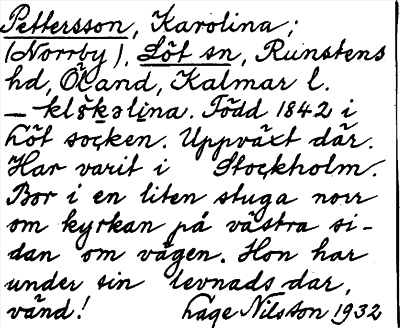 Pettersson, Karolina;
(Norrby), Löt sn, Runstens
hd, Öland, Kalmar l.
— klə̄kəlina. Född 1842 i
Löt socken. Uppväxt där.
Har varit i Stockholm.
Bor i en liten stuga norr
om kyrkan på västra si-
dan om vägen. Hon har
under sin levnads dar,
vänd! Lage Nilsson 1932